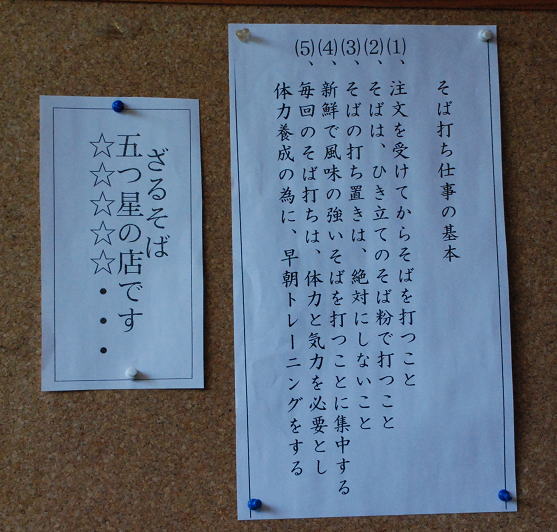 そば打ち仕事の基本
(1)、注文を受けてからそばを打つこと
(2)、そばは、ひき立てのそば粉で打つこと
(3)、そばの打ち置きは、絶対にしないこと
(4)、新鮮で風味の強いそばを打つことに集中する
(5)、毎回のそば打ちは、体力と気力を必要とし
体力養成の為に、早朝トレーニングをする
ざるそば
五つ星の店です
☆☆☆☆☆・・・